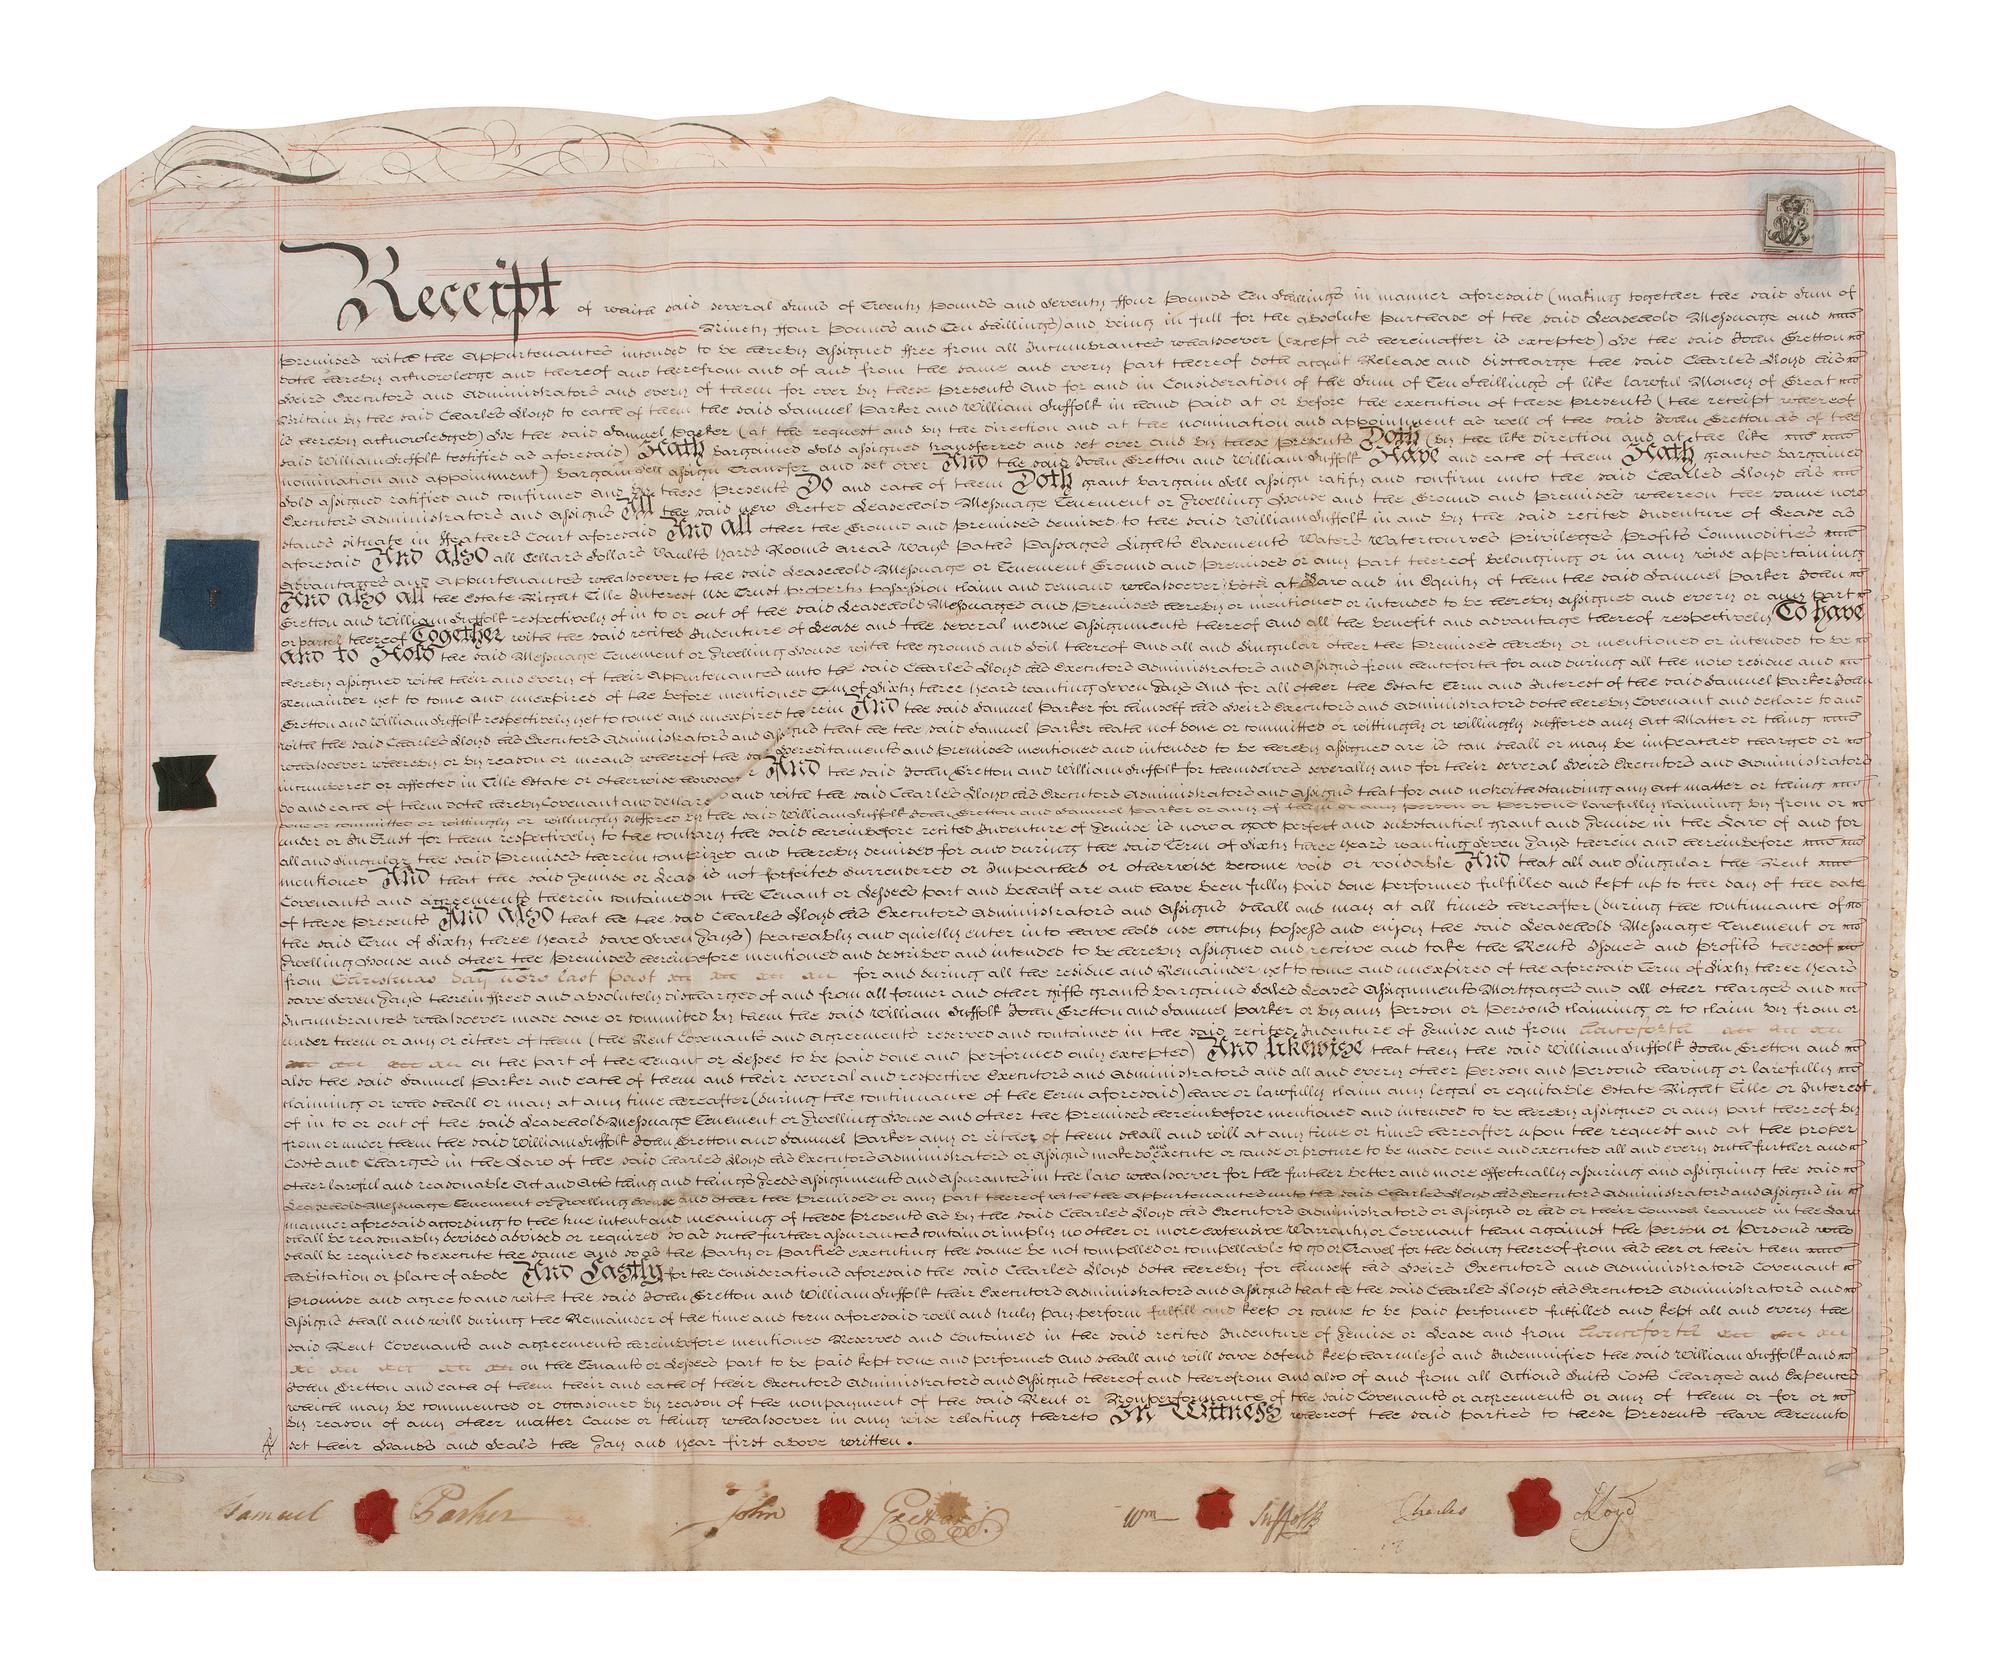 Receipt of which said several Sums of Twenty Pounds and Seventy Four Pounds Ten Shillings in manner aforesaid (making together the said Sum of
Ninety Four Pounds and Ten Shillings) and being in full for the absolute Purchase of the said Leasehold Messuage and
Premises with the Appurtenances intended to be hereby Assigned Free from all Incumbrances whatsoever (except as hereinafter is excepted) He the said John Gretton
doth hereby acknowledge and thereof and therefrom and of and from the same and every part thereof doth acquit Release and discharge the said Charles Lloyd his
Heirs Executors and Administrators and every of them for ever by these Presents And for and in Consideration of the Sum of Ten Shillings of like lawful Money of Great
Britain by the said Charles Lloyd to each of them the said Samuel Parker and William Suffolk in hand paid at or before the execution of these Presents (the receipt whereof
is hereby acknowledged) He the said Samuel Parker (at the request and by the direction and at the nomination and appointment as well of the said John Gretton as of the
said William Suffolk testified as aforesaid) Hath bargained sold assigned transferred and set over and by these Presents Doth (by the like direction and at the like
nomination and appointment) bargain sell assign transfer and set over And the said John Gretton and William Suffolk Have and each of them Hath granted bargained
sold assigned ratified and confirmed and by these Presents Do and each of them Doth grant bargain sell assign ratify and confirm unto the said Charles Lloyd his
Executors Administrators and Assigns All the said new Erected Leasehold Messuage Tenement or Dwelling House and the Ground and Premises whereon the same now
stands situate in Heathers Court aforesaid And All other the Ground and Premises demised to the said William Suffolk in and by the said recited Indenture of Lease as
aforesaid And Also all Cellars Sollars Vaults Yards Rooms Areas Ways Paths Passages Lights Easements Waters Watercourses Privileges Profits Commodities
Advantages and Appurtenances whatsoever to the said Leasehold Messuage or Tenement Ground and Premises or any part thereof belonging or in any wise appertaining
And also all the Estate Right Title Interest Use Trust Property Possession claim and demand whatsoever both at Law and in Equity of them the said Samuel Parker John
Gretton and William Suffolk respectively of in to or out of the said Leasehold Messuages and Premises hereby or mentioned or intended to be hereby Assigned and every or any part
or parcel thereof Together with the said recited Indenture of Lease and the several mesne Assignments thereof And all the benefit and advantage thereof respectively To have
and to Hold the said Messuage Tenement or Dwelling House with the ground and Soil thereof And all and Singular other the Premises hereby or mentioned or intended to be
hereby assigned with their and every of their Appurtenances unto the said Charles Lloyd his Executors Administrators and Assigns from henceforth for and during all the now residue and
Remainder yet to come and unexpired of the before mentioned Term of Sixty three Years wanting Seven Days And for all other the Estate Term and Interest of the said Samuel Parker John
Gretton and William Suffolk respectively yet to come and unexpired therein And the said Samuel Parker for himself his Heirs Executors and Administrators doth hereby Covenant and declare to and
with the said Charles Lloyd his Executors Administrators and Assigns that he the said Samuel Parker hath not done or committed or wittingly or willingly suffered any Act Matter or thing
whatsoever whereby or by reason or means whereof the said Hereditaments and Premises mentioned and intended to be hereby assigned are is can shall or may be impeached charged or
incumbered or affected in Title Estate or otherwise howsoever And the said John Gretton and William Suffolk for themselves severally and for their several Heirs Executors and Administrators
do and each of them doth hereby Covenant and declare and with the said Charles Lloyd his Executors Administrators and Assigns that for and notwithstanding any act matter or thing
done or committed or wittingly or willingly suffered by the said William Suffolk John Gretton and Samuel Parker or any of them or any Person or Persons lawfully claiming by from or
under or In Trust for them respectively to the contrary the said hereinbefore recited Indenture of Demise is now a good perfect and substantial grant and Demise in the Law of and for
all and Singular the said Premises therein comprized and thereby demised for and during the said Term of Sixty three Years wanting Seven Days therein and hereinbefore
mentioned And that the said Demise or Lease is not forfeited surrendered or Impeached or otherwise become void or voidable And that all and Singular the Rent
Covenants and agreements therein contained on the Tenant or Lessees part and behalf are and have been fully paid done performed fulfilled and kept up to the day of the date
of these Presents And Also that he the said Charles Lloyd his Executors Administrators and Assigns shall and may at all times hereafter (during the continuance of
the said Term of Sixty three Years save Seven Days) peaceably and quietly enter into have hold use occupy possess and enjoy the said Leasehold Messuage Tenement or
Dwelling House and other the Premises hereinbefore mentioned and described and intended to be hereby assigned and receive and take the Rents Issues and Profits thereof
from Christmas day now last past for and during all the residue and Remainder yet to come and unexpired of the aforesaid Term of Sixty three Years
save Seven Days therein freed and absolutely discharged of and from all former and other Gifts grants bargains Sales Leases Assignments Mortgages and all other charges and
Incumbrances whatsoever made done or committed by them the said William Suffolk John Gretton and Samuel Parker or by any Person or Persons claiming or to claim by from or
under them or any or either of them (the Rent Covenants and agreements reserved and contained in the said recited Indenture of Demise and from henceforth
on the part of the Tenant or Lessee to be paid done and performed only excepted) And likewise that they the said William Suffolk John Gretton and
also the said Samuel Parker and each of them and their several and respective Executors and Administrators and all and every other Person and Persons having or lawfully
claiming or who shall or may at any time hereafter (during the continuance of the Term aforesaid) have or lawfully claim any legal or equitable Estate Right Title or Interest
of in to or out of the said Leasehold Messuage Tenement or Dwelling House and other the Premises hereinbefore mentioned and intended to be hereby assigned or any part thereof by
from or under them the said William Suffolk John Gretton and Samuel Parker any or either of them shall and will at any time or times hereafter upon the request and at the proper
Costs and Charges in the Law of the said Charles Lloyd his Executors Administrators or Assigns make do and execute or cause or procure to be made done and executed all and every such further and
other lawful and reasonable Act and Acts thing and things Deeds Assignments and Assurances in the law whatsoever for the further better and more effectually assuring and assigning the said
Leasehold Messuage Tenement or Dwelling House and other the Premises or any part thereof with the Appurtenances unto the said Charles Lloyd his Executors Administrators and Assigns in
manner aforesaid according to the true intent and meaning of these Presents As by the said Charles Lloyd his Executors Administrators or Assigns or his or their Counsel learned in the Law
shall be reasonably devised advised or required So as such further assurances contain or imply no other or more extensive Warranty or Covenant than against the Person or Persons who
shall be required to execute the same And so as the Party or Parties executing the same be not compelled or compellable to go or Travel for the doing thereof from his her or their then
habitation or place of abode And Lastly for the Considerations aforesaid the said Charles Lloyd doth hereby for himself his Heirs Executors and Administrators Covenant
Promise and agree to and with the said John Gretton and William Suffolk their Executors Administrators and Assigns that he the said Charles Lloyd his Executors Administrators and
Assigns shall and will during the Remainder of the time and term aforesaid well and truly pay perform fulfill and keep or cause to be paid performed fulfilled and kept all and every the
said Rent Covenants and agreements hereinbefore mentioned Reserved and contained in the said recited Indenture of Demise or Lease and from henceforth
on the Tenants or Lessees part to be paid kept done and performed And shall and will save defend keep harmless and Indemnified the said William Suffolk and
John Gretton and each of them their and each of their Executors Administrators and Assigns thereof and therefrom And also of and from all Actions Suits Costs Charges and Expences
which may be commenced or occasioned by reason of the nonpayment of the said Rent or Nonperformance of the said Covenants or agreements or any of them or for or
by reason of any other matter Cause or thing whatsoever in any wise relating thereto In Witness whereof the said parties to these Presents have hereunto
set their Hands and Seals the Day and Year first above written.
Samuel Parker John Gretton Wm Suffolk Charles Lloyd